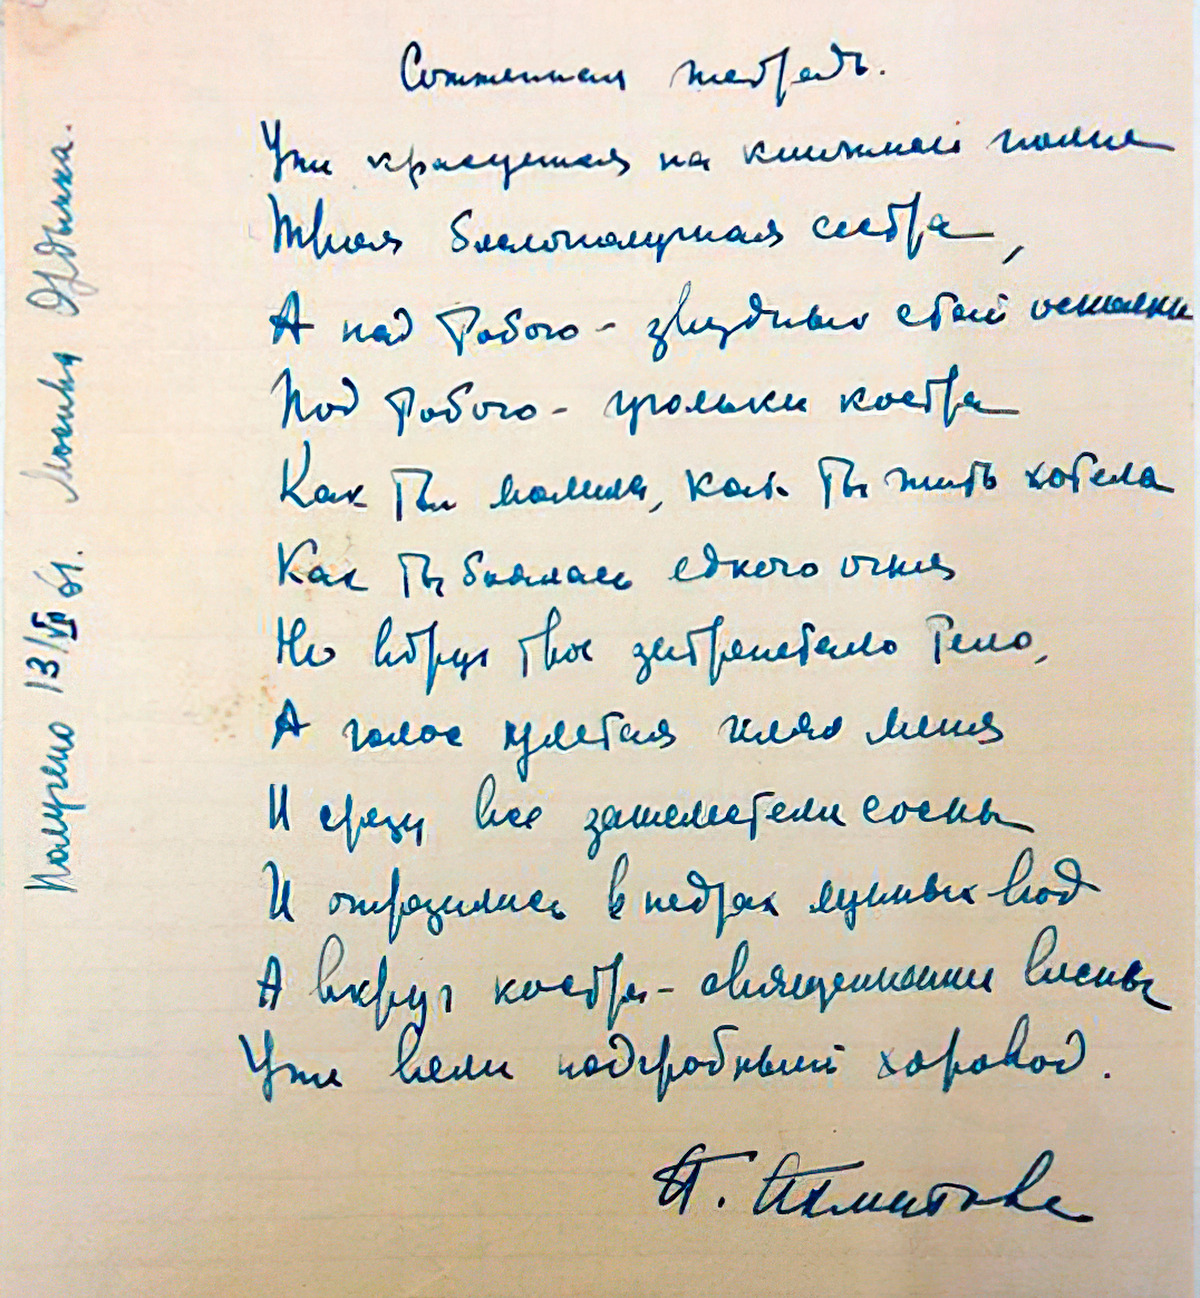 Сожженная тетрадь.
Уже красуется на книжной полке
Твоя благополучная сестра,
А над тобою - звездных стай осколки
Под тобою - угольки костра
Как ты молила, как ты жить хотела
Как ты боялась едкого огня
Но вдруг твое затрепетало тело,
А голос улетая клял меня
И сразу все зашелестели сосны
И отразились в недрах лунных вод
А вкруг костра - священнейшие весны
Уже вели надгробный хоровод.
А. Ахматова
Получено 13/VII 61. Москва Ордынка.